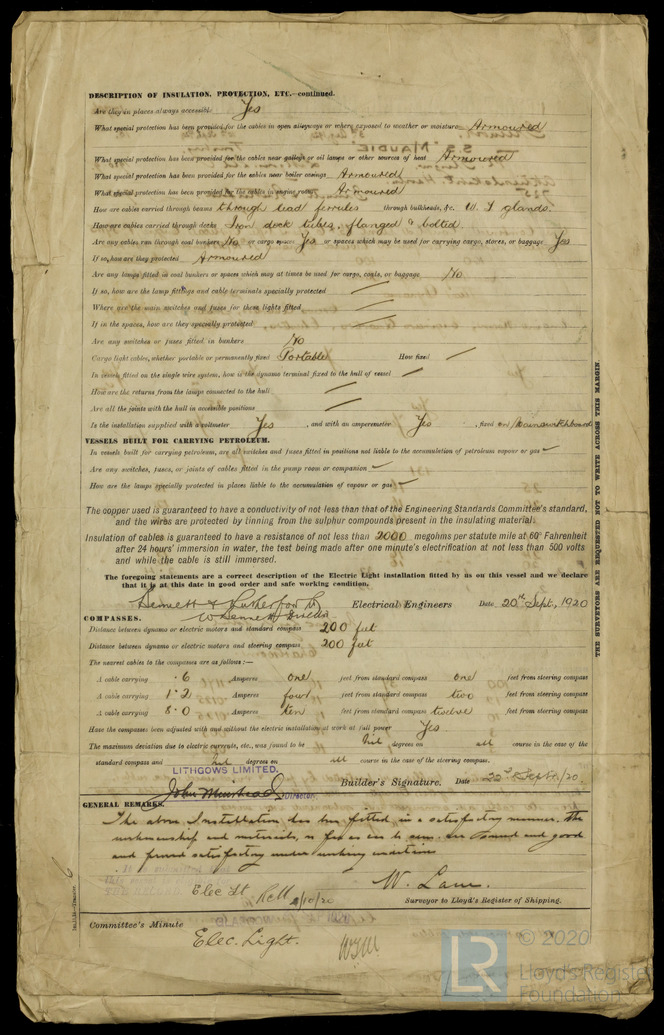 DESCRIPTION OF INSULATION, PROTECTION, ETC.—continued.
Are they in places always accessible Yes
What special protection has been provided for the cables in open alleyways or where exposed to weather or moisture Armoured
What special protection has been provided for the cables near galleys or oil lamps or other sources of heat Armoured
What special protection has been provided for the cables near boiler casings Armoured
What special protection has been provided for the cables in engine room Armoured
How are cables carried through beams through lead ferrules through bulkheads, &c. W.T glands.
How are cables carried through decks Iron deck tubes, flanged & bolted.
Are any cables run through coal bunkers No or cargo spaces Yes or spaces which may be used for carrying cargo, stores, or baggage Yes
If so, how are they protected Armoured
Are any lamps fitted in coal bunkers or spaces which may at times be used for cargo, coals, or baggage No
If so, how are the lamp fittings and cable terminals specially protected
Where are the main switches and fuses for these lights fitted
If in the spaces, how are they specially protected
Are any switches or fuses fitted in bunkers No
Cargo light cables, whether portable or permanently fixed Portable How fixed
In vessels fitted on the single wire system, how is the dynamo terminal fixed to the hull of vessel
How are the returns from the lamps connected to the hull
Are all the joints with the hull in accessible positions
Is the installation supplied with a voltmeter Yes , and with an amperemeter Yes , fixed on Mainswitchboard
VESSELS BUILT FOR CARRYING PETROLEUM.
In vessels built for carrying petroleum, are all switches and fuses fitted in positions not liable to the accumulation of petroleum vapour or gas
Are any switches, fuses, or joints of cables fitted in the pump room or companion
How are the lamps specially protected in places liable to the accumulation of vapour or gas
The copper used is guaranteed to have a conductivity of not less than that of the Engineering Standards Committee's standard,
and the wires are protected by tinning from the sulphur compounds present in the insulating material.
Insulation of cables is guaranteed to have a resistance of not less than 2000 megohms per statute mile at 60° Fahrenheit
after 24 hours' immersion in water, the test being made after one minute's electrification at not less than 500 volts
and while the cable is still immersed.
The foregoing statements are a correct description of the Electric Light installation fitted by us on this vessel and we declare
that it is at this date in good order and safe working condition.
Electrical Engineers Date 20th Sept., 1920
COMPASSES.
Distance between dynamo or electric motors and standard compass 200 feet
Distance between dynamo or electric motors and steering compass 200 feet
The nearest cables to the compasses are as follows:—
A cable carrying .6 Amperes one feet from standard compass one feet from steering compass
A cable carrying 1.2 Amperes four feet from standard compass two feet from steering compass
A cable carrying 8.0 Amperes ten feet from standard compass twelve feet from steering compass
Have the compasses been adjusted with and without the electric installation at work at full power Yes
The maximum deviation due to electric currents, etc., was found to be Nil degrees on all course in the case of the
standard compass and Nil degrees on all course in the case of the steering compass.
LITHGOWS LIMITED.
John Muirhead Director. Builder's Signature. Date 22nd Sept/20
GENERAL REMARKS.
The above Installation has been fitted in a satisfactory manner. The
workmanship and materials, as far as can be seen, are sound and good
and found satisfactory under working conditions
Elec Lt. 2/10/20
W. Lane.
Surveyor to Lloyd's Register of Shipping.
Committee's Minute
Elec. Light.
THE SURVEYORS ARE REQUESTED NOT TO WRITE ACROSS THIS MARGIN.
LR
© 2020
Lloyd's Register
Foundation